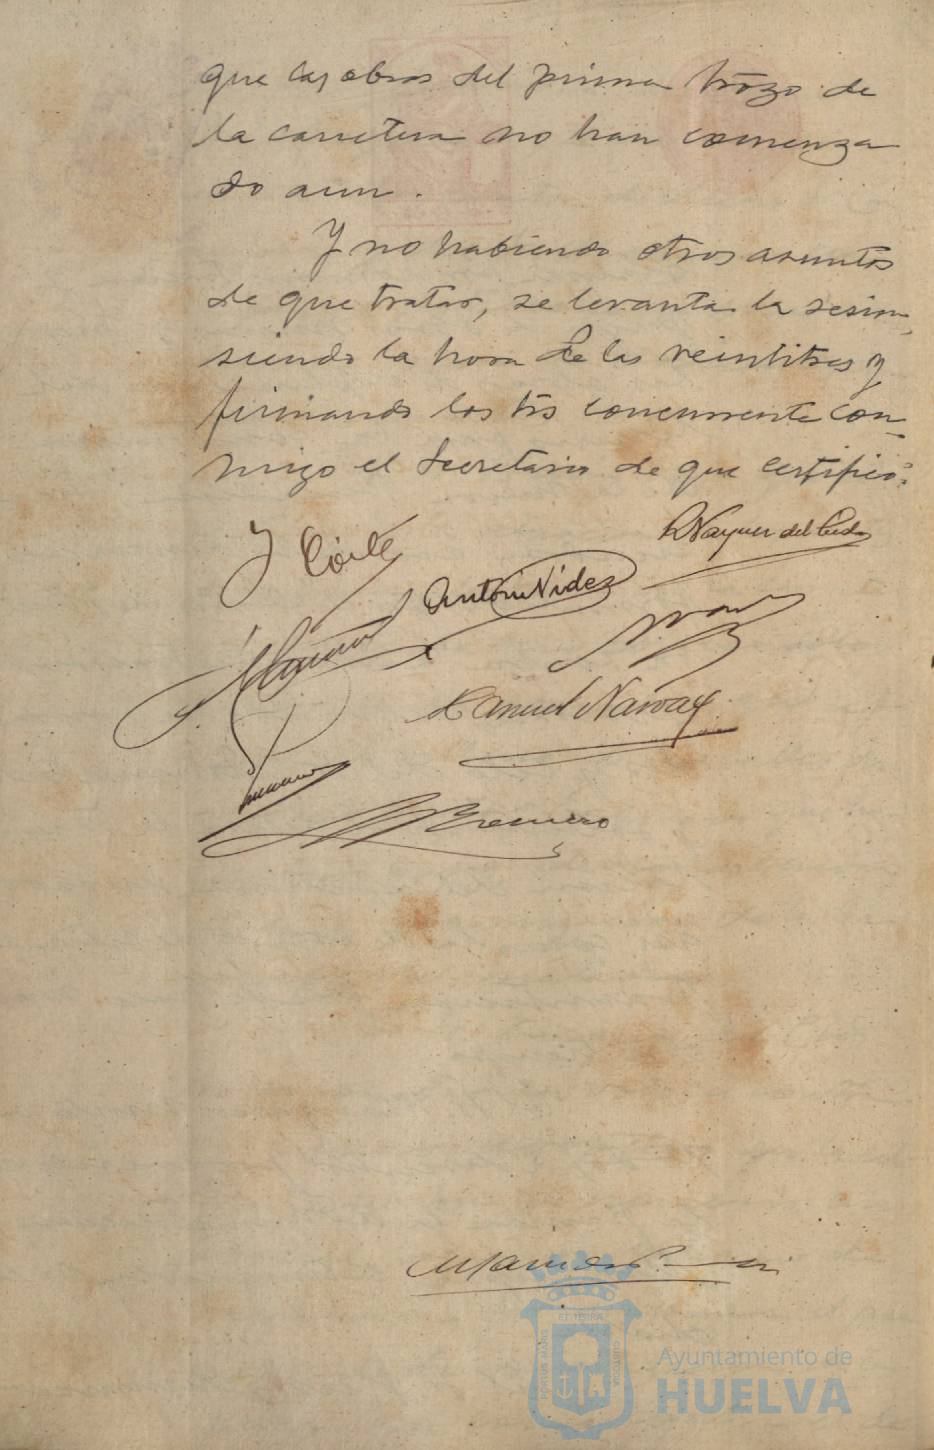 que las obras del primer trozo de
la carretera no han comenza
do aun.
Y no habiendo otros asuntos
de que tratar, se levanta la sesion,
siendo la hora de las veintitres y
firmando los srs concurrente con-
migo el Secretario de que certifico:
Y Corté
R Vazquez del Cid
Antonio Videz
Manuel Narvaez
Romero
Ayuntamiento de
HUELVA